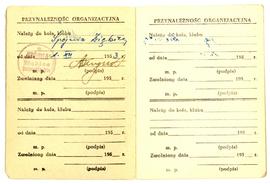 PRZYNALEŻNOŚĆ ORGANIZACYJNA
Należy do koła, klubu
od dnia 1953 r.
m. p. (podpis)
Zwolniony dnia 195 r.
m. p. (podpis)
Należy do koła, klubu
od dnia 195 r.
m. p. (podpis)
Zwolniony dnia 195 r.
m. p. (podpis)
PRZYNALEŻNOŚĆ ORGANIZACYJNA
Należy do koła, klubu
od dnia 195 r.
m. p. (podpis)
Zwolniony dnia 195 r.
m. p. (podpis)
Należy do koła, klubu
od dnia 195 r.
m. p. (podpis)
Zwolniony dnia 195 r.
m. p. (podpis)